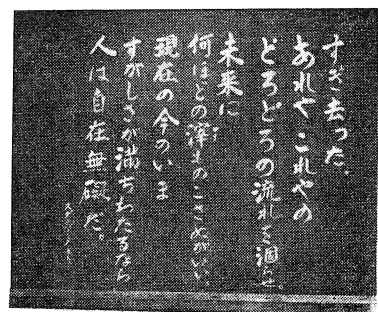 すぎ去った、
あれやこれやの
どろどろの流れを涸らせ。
未来に
何ほどの滓ものこさぬがいい。
現在の今のいま
すがしさが満ちわたるなら
人は自在無礙だ。